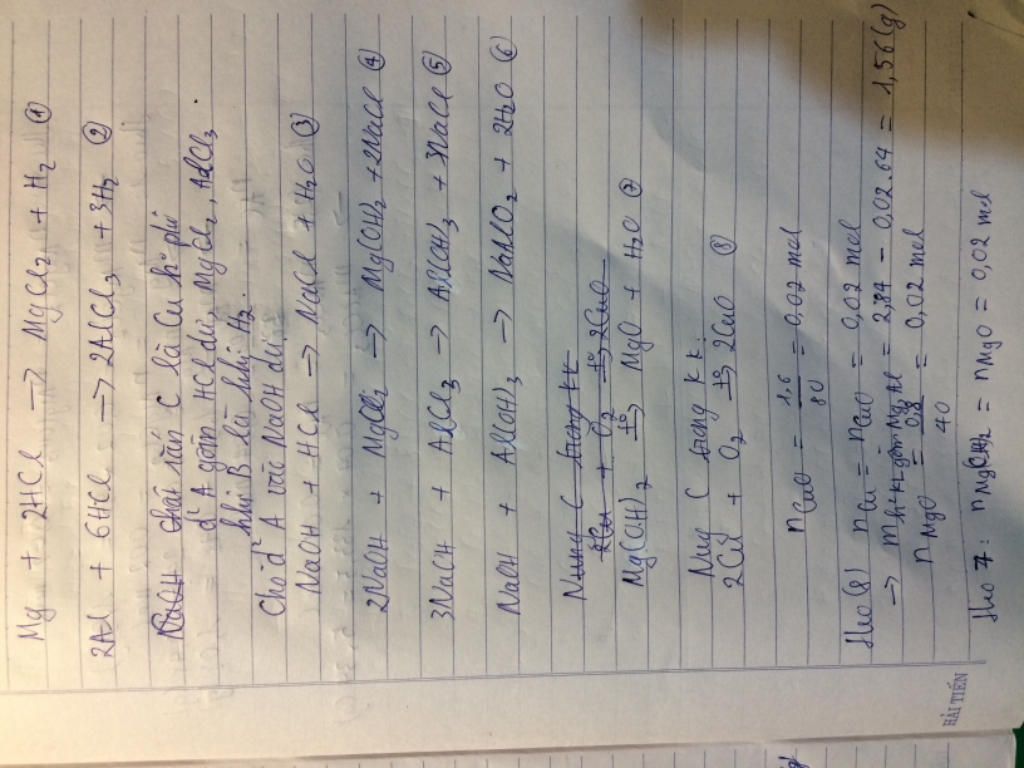 Mg + 2HCl → MgCl₂ + H₂ ①
2Al + 6HCl → 2AlCl₃ + 3H₂ ②
chất rắn C là Cu k pứ
d² A gồm HCl dư, MgCl₂, AlCl₃
khí B là khí H₂.
Cho d² A vào NaOH dư
NaOH + HCl → NaCl + H₂O ③
2NaOH + MgCl₂ → Mg(OH)₂ + 2NaCl ④
3NaOH + AlCl₃ → Al(OH)₃ + 3NaCl ⑤
NaOH + Al(OH)₃ → NaAlO₂ + 2H₂O ⑥
Nung C trong kk
2Cu + O₂ t° → 2CuO
Mg(OH)₂ t° → MgO + H₂O ⑦
Nug C trong kk.
2Cu + O₂ t° → 2CuO ⑧
n CuO = 1,6 / 80 = 0,02 mol
Theo (8) n Cu = n CuO = 0,02 mol
→ m h² KL gồm Mg, Al = 2,84 - 0,02.64 = 1,56 (g)
n MgO = 0,8 / 40 = 0,02 mol
Theo 7: n MgCl₂ = n MgO = 0,02 mol
HẢI TIẾN